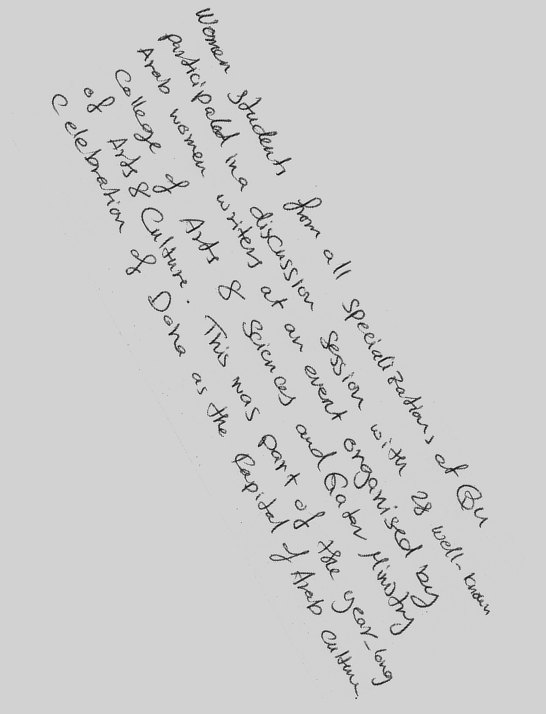 Women students from all specializations at QU
participated in a discussion session with 28 well-known
Arab women writers at an event organised by
College of Arts & Sciences and Qatar Ministry
of Arts & Culture. This was part of the year-long
celebration of Doha as the Capital of Arab culture.